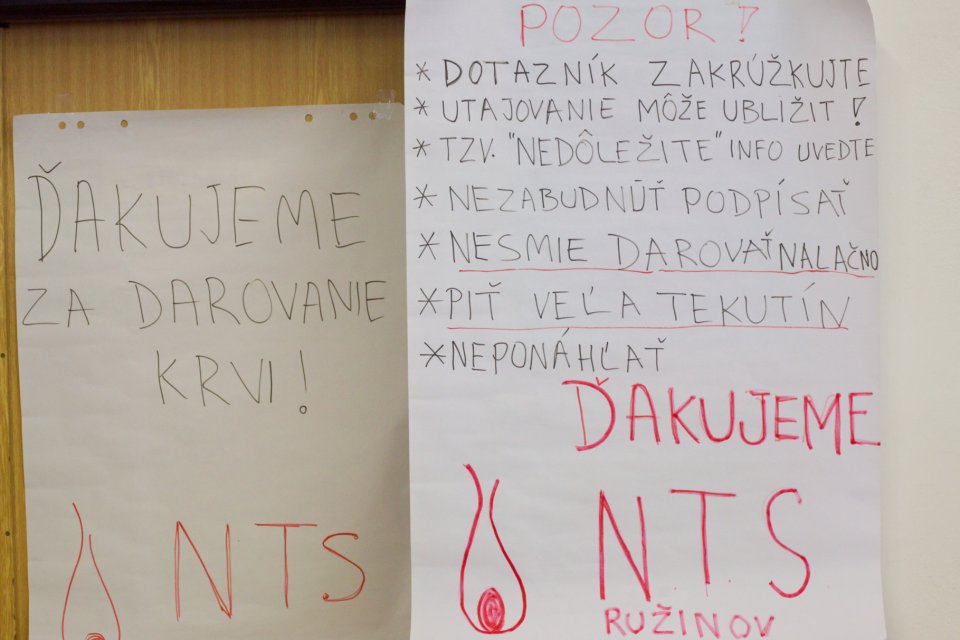 ĎAKUJEME
ZA DAROVANIE
KRVI!
NTS
POZOR!
* DOTAZNÍK ZAKRÚŽKUJTE
* UTAJOVANIE MÔŽE UBLÍŽIT!
* TZV. "NEDÔLEŽITE" INFO UVEDTE
* NEZABUDNÚŤ PODPÍSAŤ
* NESMIE DAROVAŤ NALAČNO
* PIŤ VEĽA TEKUTÍN
* NEPONÁHĽAŤ
ĎAKUJEME
NTS
RUŽINOV